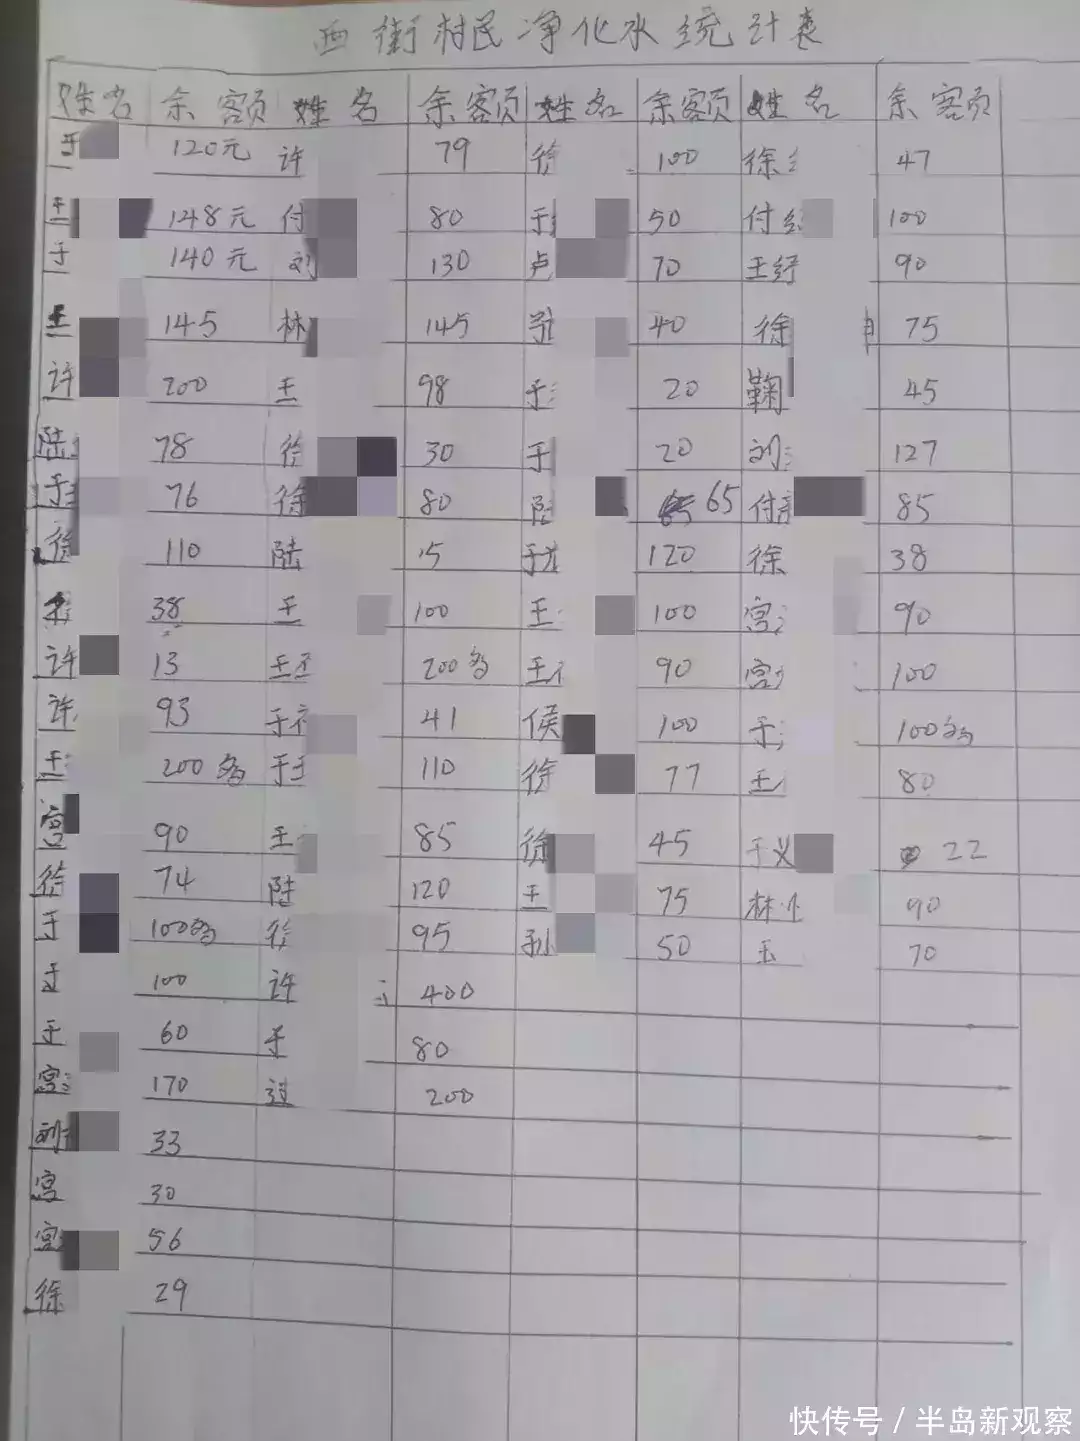 西街村民净化水统计表
姓名 余额 姓名 余额 姓名 余额 姓名 余额
于 120元 许 79 徐 100 徐 47
王 148元 付 80 于 50 付 100
于 140元 刘 130 卢 70 王 90
王 145 林 145 40 徐 75
许 200 王 98 于 20 鞠 45
陆 78 徐 30 于 20 刘 127
于 76 徐 80 陆 65 付 85
徐 110 陆 15 于 120 徐 38
38 王 100 王 100 宫 90
许 13 王 200多 王 90 宫 100
许 93 于 41 侯 100 于 100多
王 200多 于 110 徐 77 王 80
宫 90 王 85 徐 45 于义 22
徐 74 陆 120 王 75 林 90
于 100多 徐 95 孙 50 王 70
于 100 许 400
于 60 于 80
宫 170 200
刘 33
宫 30
宫 56
徐 29
快传号 / 半岛新观察